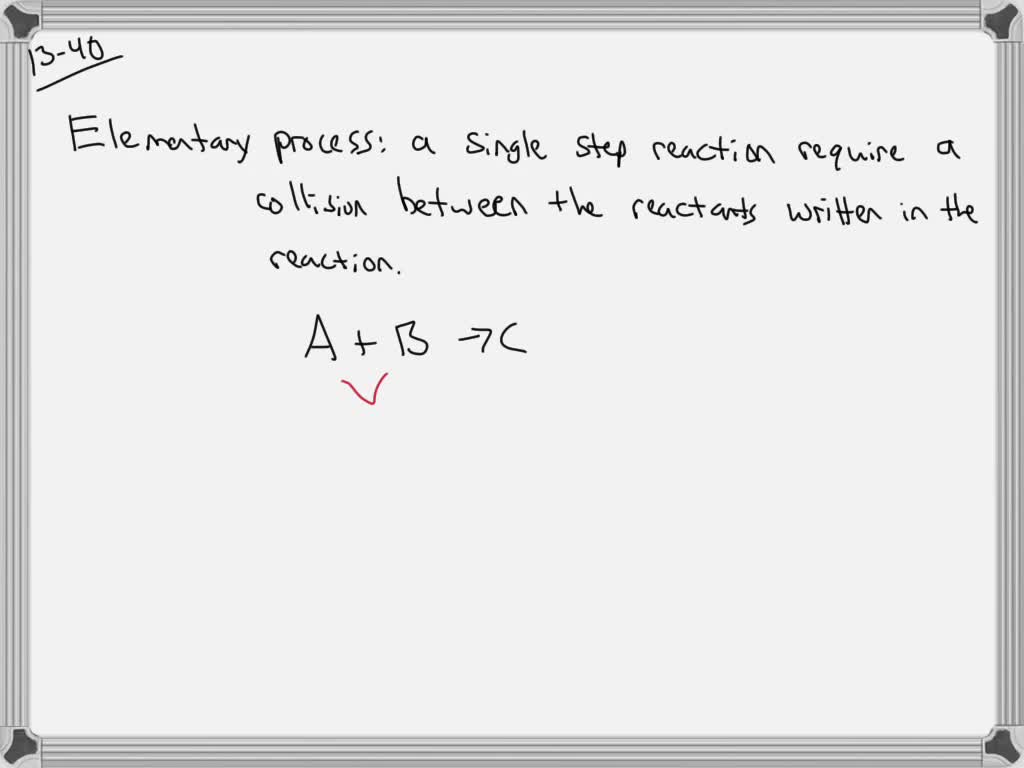 13-40
Elementary process: a single step reaction require a
collision between the reactants written in the
reaction.
A + B → C